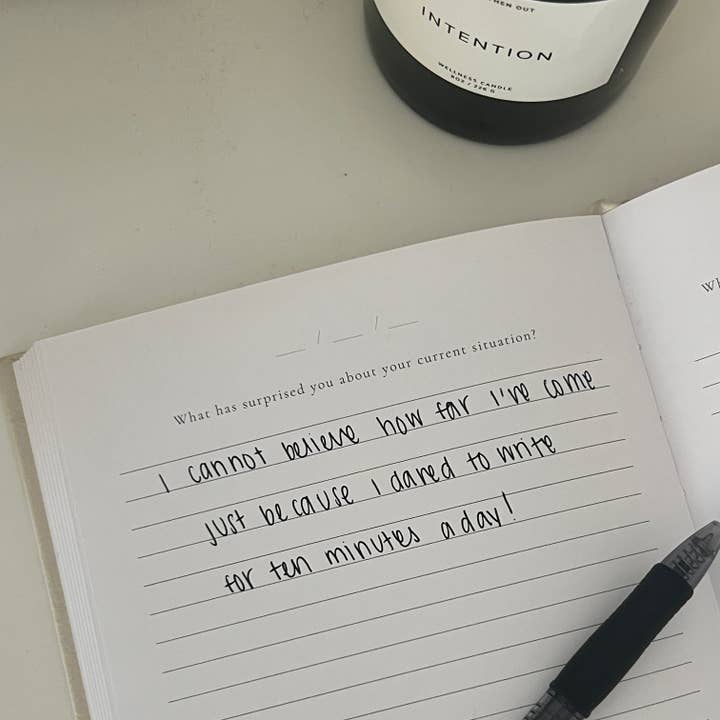 INTENTION
WELLNESS CANDLE
8OZ / 226 G
__ / __ / __
What has surprised you about your current situation?
I cannot believe how far I've come
just because I dared to write
for ten minutes a day!